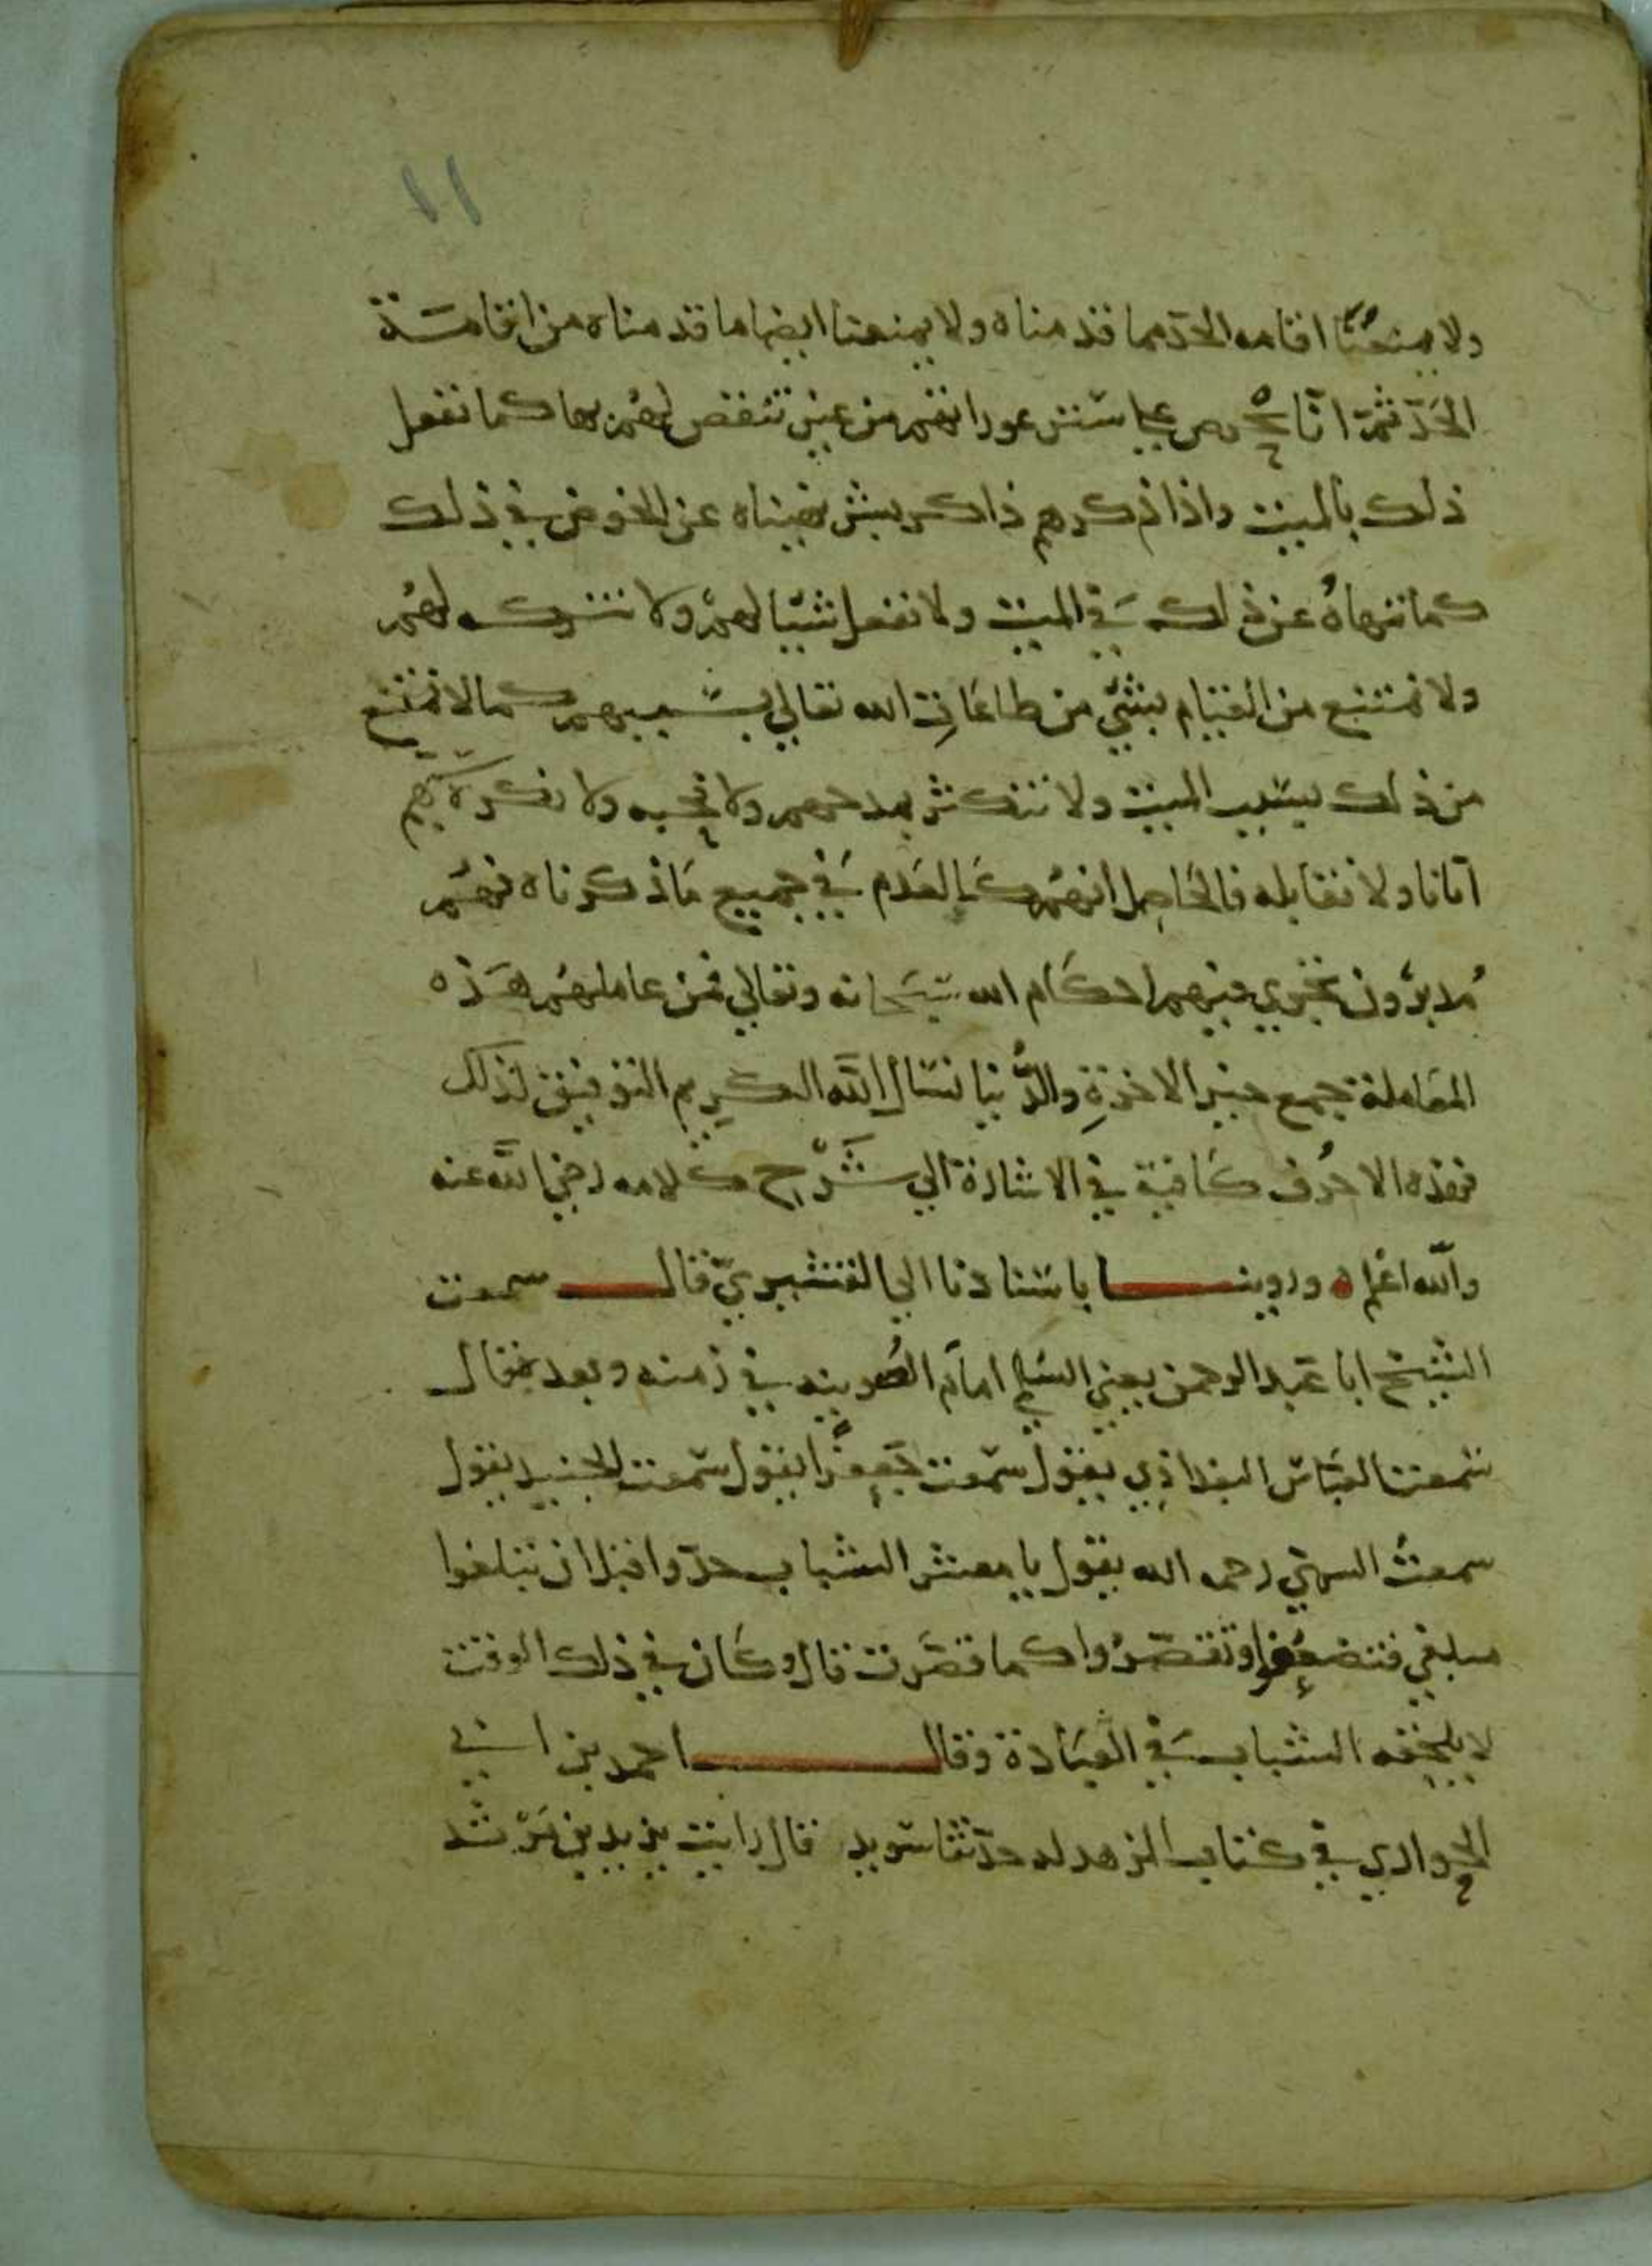 ١١
ولا يمنعنا اقامه الحد مما قدمناه ولا يمنعنا ايضا ما قدمناه من اقامة
الحد ثم انا نحرص علي ستر عوراتهم من غير تنقص لهم بها كما نفعل
ذلك بالميت واذا ذكرهم ذاكر بشر نهيناه عن الخوض في ذلك
كما ننهاه عن ذلك في الميت ولا نفعل شيا لهم ولا نتركه لهم
ولا نمتنع من القيام بشي من طاعات الله تعالي بسببهم كما لا نمتنع
من ذلك بسبب الميت ولا نتكثر بمدحهم ولا نحبه ولا نكره
انانا ولا نقابله فالحاصل انهم كالعدم في جميع ما ذكرناه فهم
مدبرون تجري فيهم احكام الله سبحانه وتعالي فمن عاملهم هذه
المعاملة جمع خير الاخرة والدنيا نسال الله الكريم التوفيق لذلك
فهذه الاحرف كافية في الاشارة الي شرح كلامه رضي الله عنه
والله اعلم ه وروينا باسنادنا الي القشيري قال سمعت
الشيخ ابا عبد الرحمن يعني السلمي امام الصوفيه في زمنه وبعده قال
سمعت العباس البغداذي يقول سمعت جعفرا يقول سمعت الجنيد يقول
سمعت السري رحمه الله يقول يا معشر الشباب جدوا قبل ان تبلغوا
مبلغي فتضعفوا وتقصروا كما قصرت قال وكان في ذلك الوقت
لا يلحقه الشباب في العبادة وقال احمد بن ابي
الحواري في كتاب الزهد له حدثنا سويد قال رايت يزيد بن مرثد